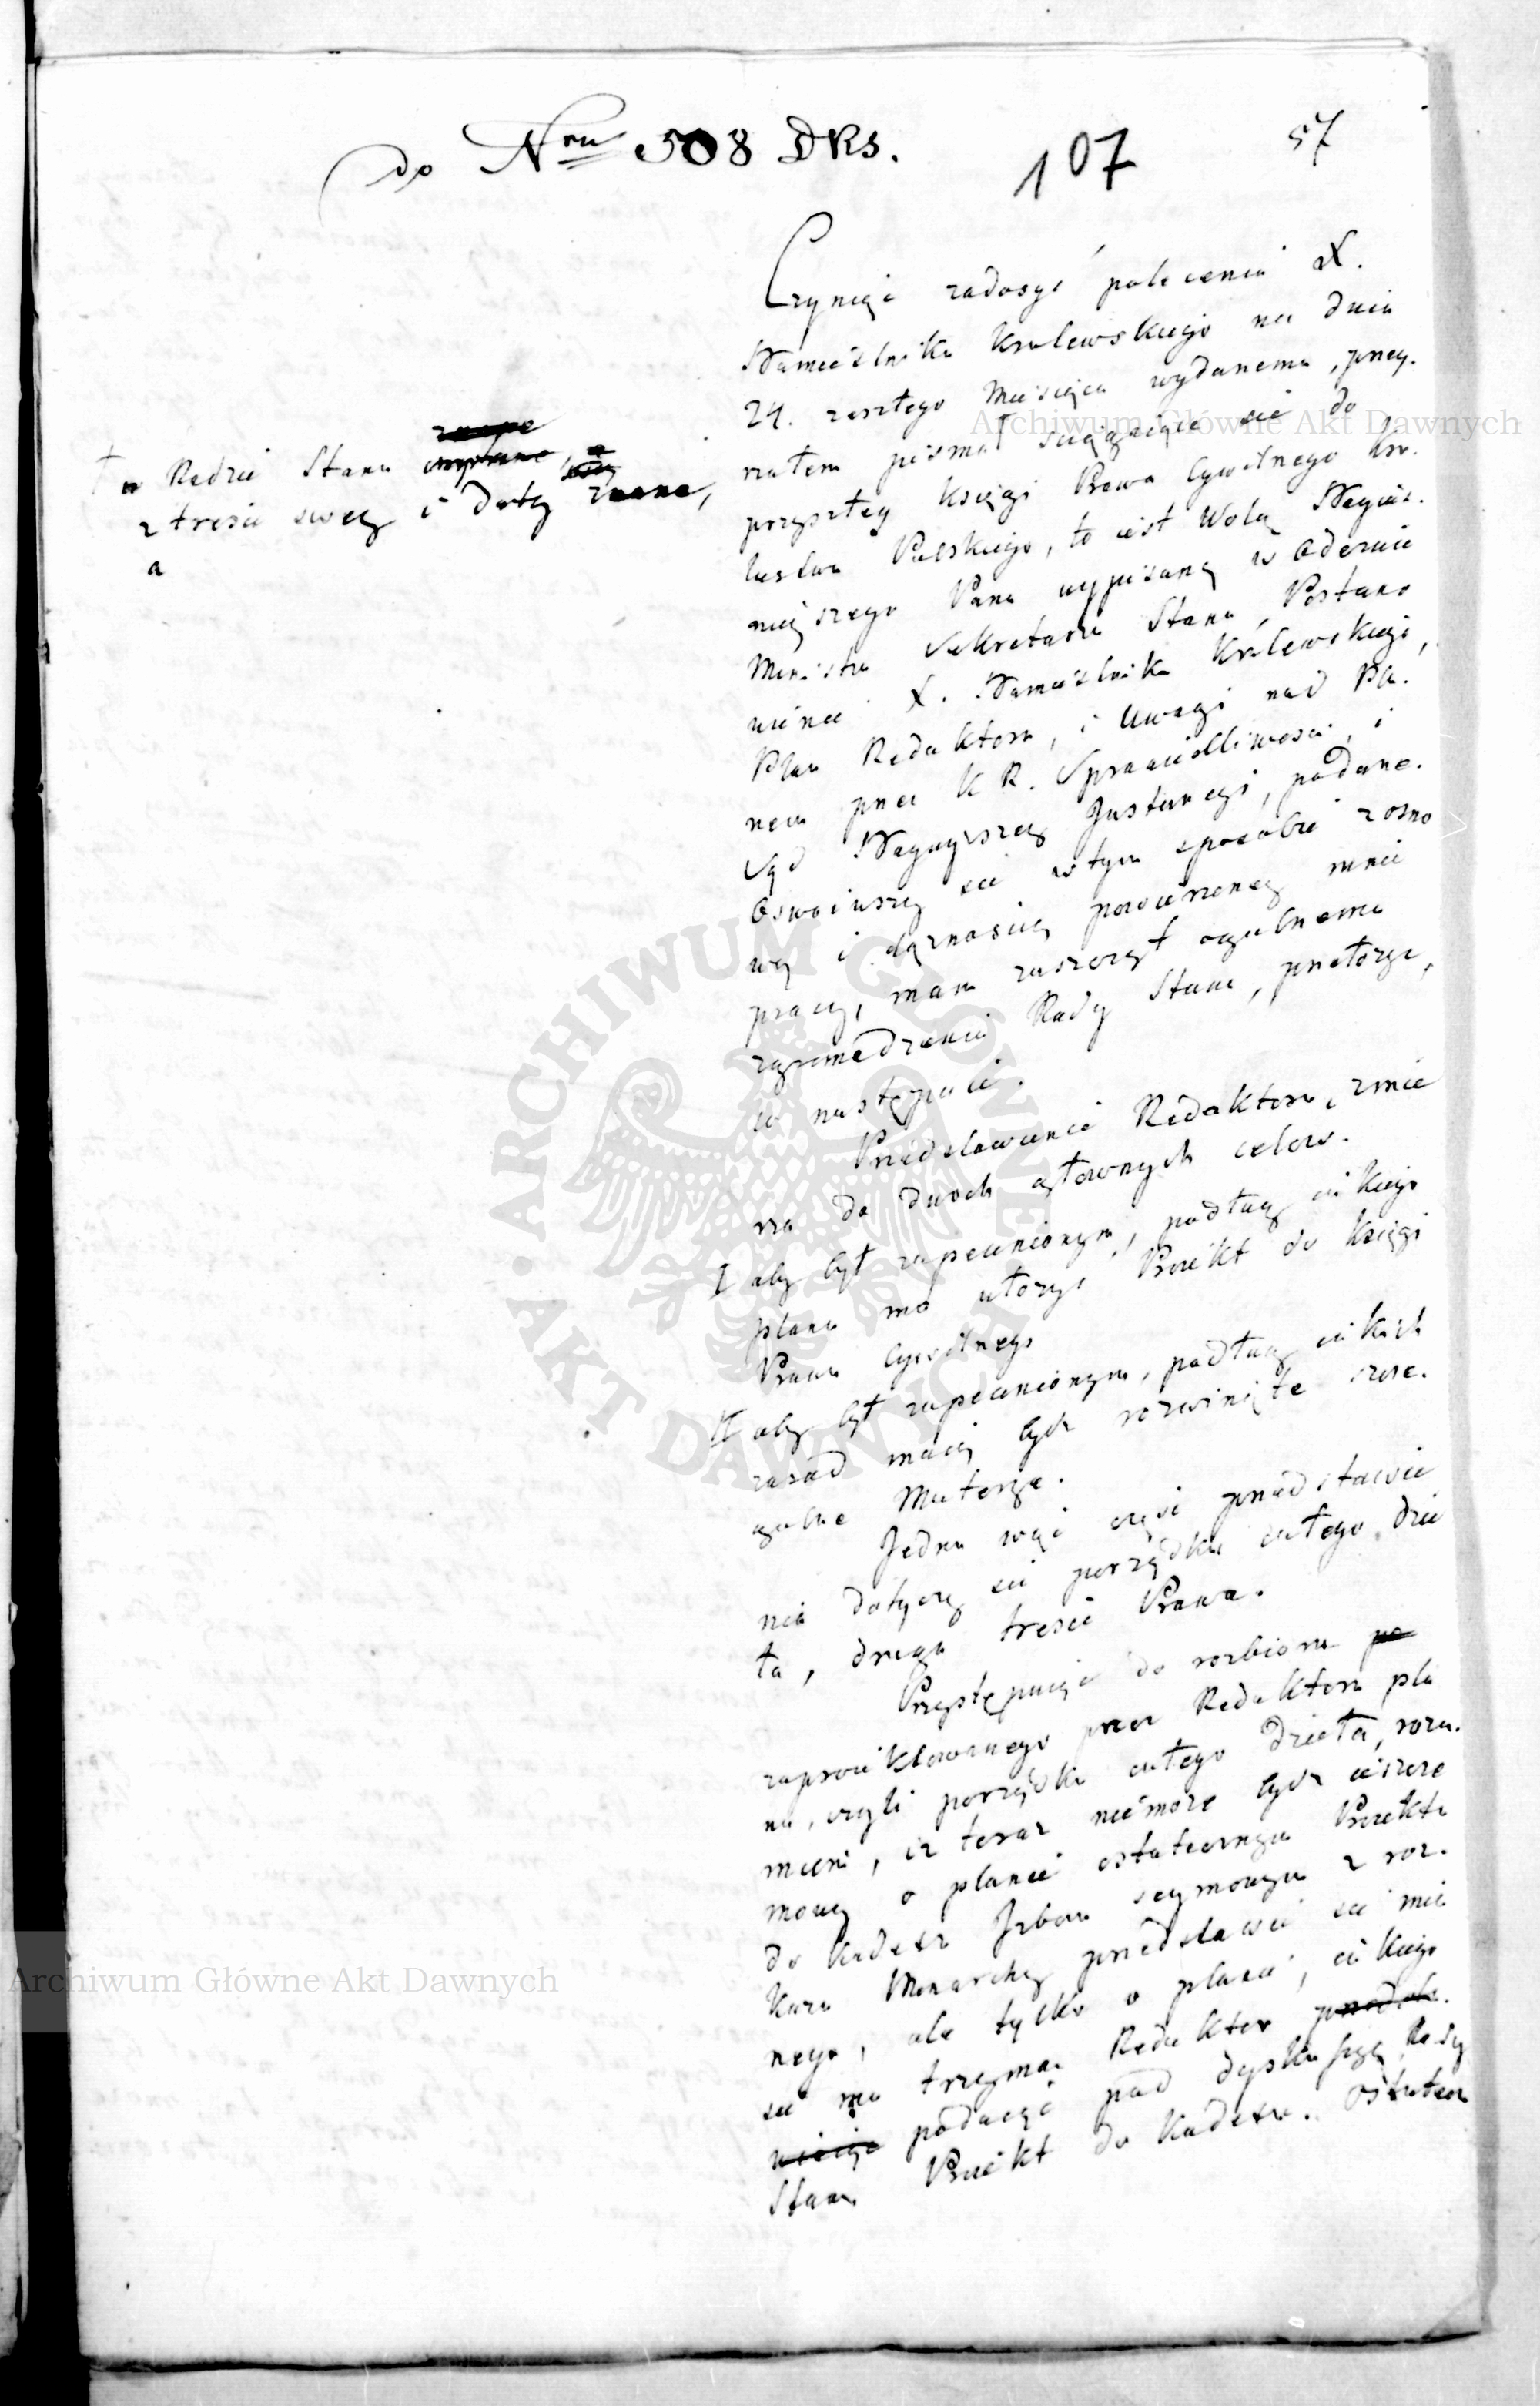 do Nru 508 DRS.
107
57
Czyniąc zadosyć poleceniu X.
Namiestnika Krolewskiego na dniu
24. zeszłego Miesiąca wydanemu, przey-
rzałem pisma ściągaiące się do
przyszłey Księgi Prawa Cywilnego Kro-
lestwa Polskiego, to iest Wolą Nayiaś-
nieyszego Pana wypisaną w Odezwie
Ministra Sekretarza Stanu, Postano
wienie X. Namiestnika Królewskiego,
Plan Redaktora, i Uwagi nad Pla-
nem przez K R. Sprawiedliwości, i
Sąd Naywyższey Instancyi, podane.
Oswoiwszy się w tym sposobie z osno
wą i dążnością powierzoney mnie
pracy, mam zaszczyt ogulnemu
zgromadzeniu Rady Stanu, przełożyć,
co nastąpuie.
Przedstawienie Redaktora, zmie
rza do dwoch głownych celow.
I aby był zapewnionym, podług iakiego
planu ma ułożyć Proiekt do Księgi
Prawa Cywilnego
II aby był zapewnionym, podług iakich
zasad maią bydz rozwinięte szcze-
gulne Materye.
Jedna więc część przedstawie
nia dotyczy się porządku całego dzie
ła, druga treści Prawa.
Przystępuiąc do rozbioru po
zaproiektowanego przez Redaktora pla
nu, czyli porządku całego dzieła, rozu-
miem, iż teraz niemoże bydz ieszcze
mowy o planie ostatecznym Proiektu
do Kodexu Izbom seymowym z roz-
kazu Monarchy przedstawić się maią
nego, ale tylko o planie, iakiego
się ma trzymać Redaktor przedsta-
wiaiąc podaiąc pod dyskussyą Rady
Stanu Proiekt do Kodexu. Ostatecz
† w Radzie Stanu
z treści swey i daty znane,
a
Archiwum Główne Akt Dawnych
ARCHIWUM GŁÓWNE AKT DAWNYCH
Archiwum Główne Akt Dawnych